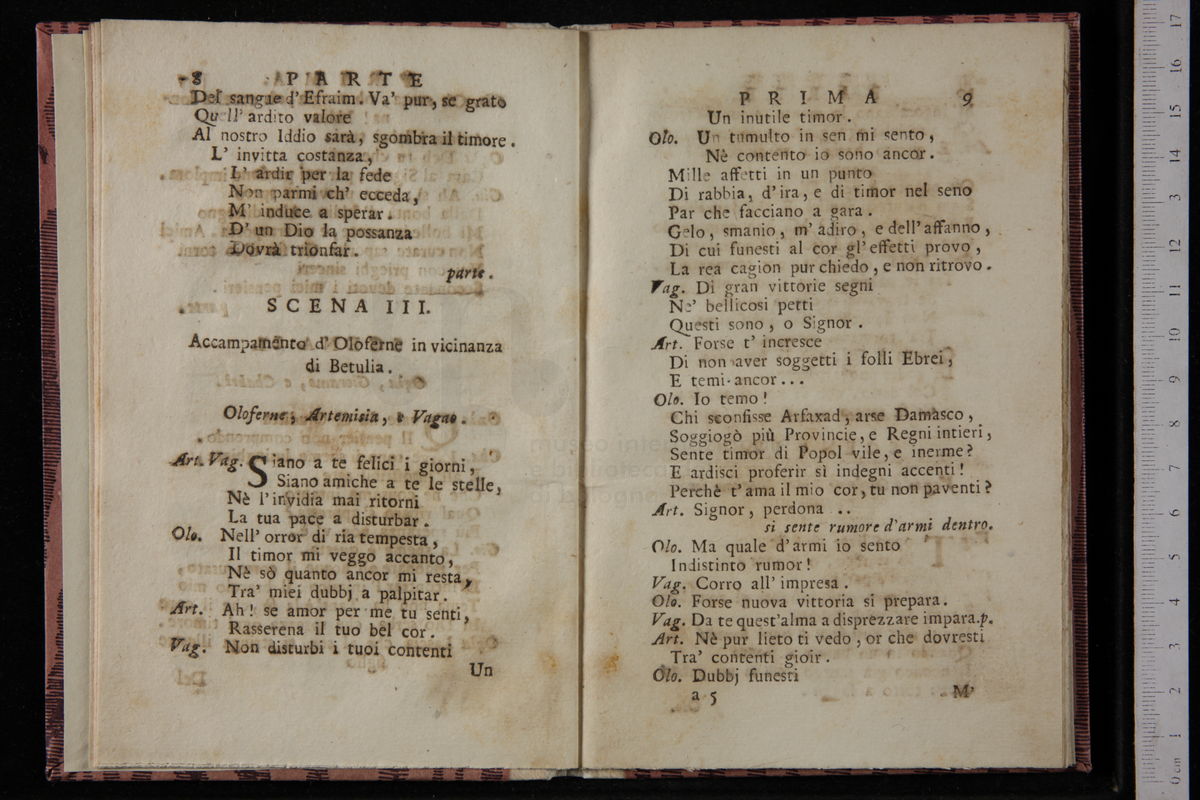 8 PARTE
Del sangue d' Efraim. Va' pur, se grato
Quell' ardito valore
Al nostro Iddio sarà, sgombra il timore.
L' invitta costanza,
L' ardir per la fede
Non parmi ch' ecceda,
M' induce a sperar.
D' un Dio la possanza
Dovrà trionfar.
parte.
SCENA III.
Accampamento d' Oloferne in vicinanza
di Betulia.
Oloferne, Artemisia, e Vagao.
Art. Vag. Siano a te felici i giorni,
Siano amiche a te le stelle,
Nè l' invidia mai ritorni
La tua pace a disturbar.
Olo. Nell' orror di ria tempesta,
Il timor mi veggo accanto,
Nè sò quanto ancor mi resta,
Tra' miei dubbj a palpitar.
Art. Ah! se amor per me tu senti,
Rasserena il tuo bel cor.
Vag. Non disturbi i tuoi contenti
Un
PRIMA 9
Un inutile timor.
Olo. Un tumulto in sen mi sento,
Nè contento io sono ancor.
Mille affetti in un punto
Di rabbia, d' ira, e di timor nel seno
Par che facciano a gara.
Gelo, smanio, m' adiro, e dell' affanno,
Di cui funesti al cor gl' effetti provo,
La rea cagion pur chiedo, e non ritrovo.
Vag. Di gran vittorie segni
Ne' bellicosi petti
Questi sono, o Signor.
Art. Forse t' incresce
Di non aver soggetti i folli Ebrei,
E temi ancor...
Olo. Io temo!
Chi sconfisse Arfaxad, arse Damasco,
Soggiogò più Provincie, e Regni intieri,
Sente timor di Popol vile, e inerme?
E ardisci proferir sì indegni accenti!
Perchè t' ama il mio cor, tu non paventi?
Art. Signor, perdona ..
si sente rumore d' armi dentro.
Olo. Ma quale d' armi io sento
Indistinto rumor!
Vag. Corro all' impresa.
Olo. Forse nuova vittoria si prepara.
Vag. Da te quest' alma a disprezzare impara. p.
Art. Nè pur lieto ti vedo, or che dovresti
Tra' contenti gioir.
Olo. Dubbj funesti
a 5 M'